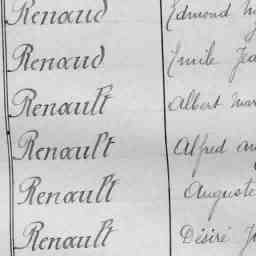 Renaud Edmond
Renaud Emile
Renault Albert
Renault Alfred
Renault Auguste
Renault Désiré